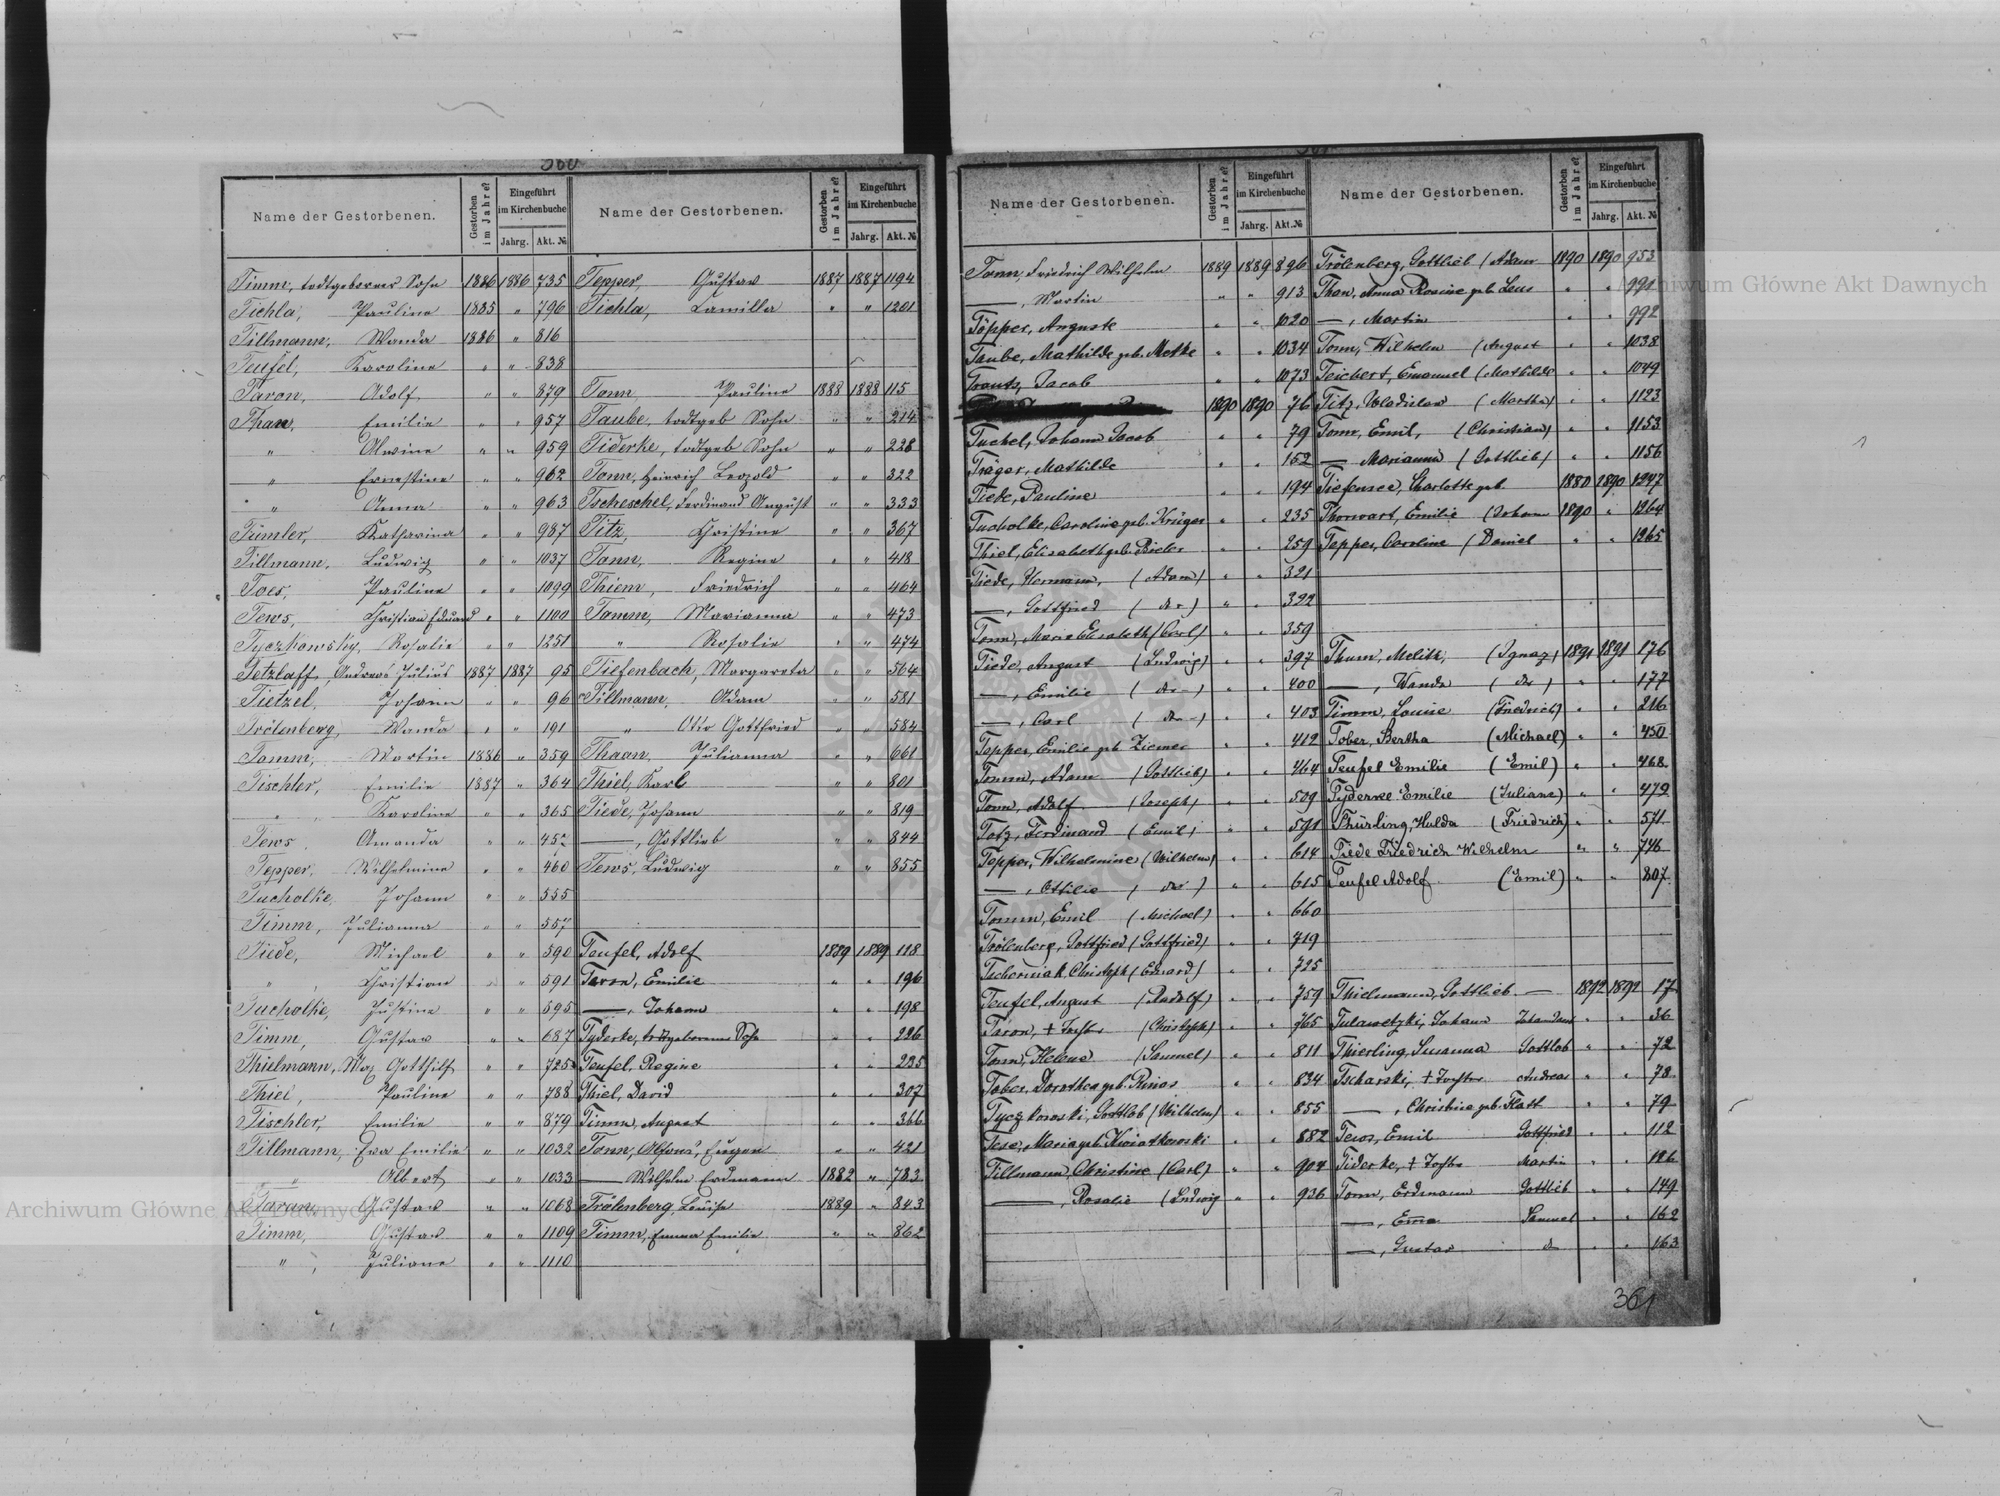 360
Name der Gestorbenen. Gestorben im Jahre? Eingeführt im Kirchenbuche Jahrg. Akt. №
Timm, todtgeborner Sohn 1886 1886 735
Tichla, Pauline 1885 " 796
Tillmann, Wanda 1886 " 816
Teufel, Karoline " " 838
Taron, Adolf " " 879
Than, Emilie " " 957
" Alwine " " 959
" Ernestine " " 962
" Anna " " 963
Tümler, Katharina " " 987
Tillmann, Ludwig " " 1037
Toes, Pauline " " 1099
Tews, Christian Eduard " " 1100
Tyczkowsky, Rosalie " " 1251
Tetzlaff, Andreas Julius 1887 1887 95
Tietzel, Johann " " 96
Trölenberg, Wanda " " 191
Tomm, Martin 1886 " 359
Tischler, Emilie 1887 " 364
" Karoline " " 365
Tews, Amanda " "
Tepper, Wilhelmine " " 460
Tucholke, Johann " " 555
Timm, Julianna " " 557
Tiede, Michael " " 590
" Christian " " 591
Tucholke, Justine " " 595
Timm, Gustav " " 687
Thielmann, Gotthilf " " 725
Thiel, Pauline " " 788
Tischler, Emilie " " 879
Tillmann, Eva Emilie " " 1032
" Albert " " 1033
Taron, Gustav " " 1068
Timm, Gustav " " 1109
" Juliane " " 1110
Name der Gestorbenen. Gestorben im Jahre? Eingeführt im Kirchenbuche Jahrg. Akt. №
Tepper, Gustav 1887 1887 1194
Tichla, Kamilla " " 1201
Tonn, Pauline 1888 1888 115
Taube, todtgeb Sohn " " 214
Tiderke, todtgeb Sohn " " 228
Tonn, Heinrich Leopold " " 322
Tscheschel, Ferdinand August " " 333
Titz, Christine " " 367
Tonn, Regine " " 418
Thiem, Friedrich " " 464
Tomm, Marianna " " 473
" Rosalie " " 474
Tiefenbach, Margareta " " 564
Tillmann, Adam " " 581
" Otto Gottfried " " 584
Thaan, Julianna " " 661
Thiel, Karl " " 801
Tiede, Johann " " 819
—, Gottlieb " " 844
Tews, Ludwig " " 855
Teufel, Adolf 1889 1889 118
Taron, Emilie " " 196
—, Johann " " 198
Tyderke, todtgeborener Sohn " " 226
Teufel, Regine " " 235
Thiel, David " " 307
Timm, August " " 366
Tonn, Alfons, Eugen " " 421
— Wilhelm Erdmann 1882 " 783
Trölenberg, Louise 1889 " 843
Timm, Emma Emilie " " 862
Name der Gestorbenen. Gestorben im Jahre? Eingeführt im Kirchenbuche Jahrg. Akt. №
Tonn, Friedrich Wilhelm 1889 1889 896
—, Martin " " 913
Töpper, Auguste " " 1020
Taube, Mathilde geb. Metke " " 1034
Trautz, Jacob " " 1073
1890 1890 76
Tuchel, Johann Jacob " " 79
Träger, Mathilde " " 152
Tiede, Pauline " " 194
Tucholke, Caroline geb. Krüger " " 235
Thiel, Elisabeth geb. Bieler " " 259
Tiede, Hermann, (Adam) " " 321
—, Gottfried (do) " " 322
Tonn, Marie Elisabeth (Carl) " " 359
Tiede, August (Ludwig) " " 397
—, Emilie (do) " " 400
—, Carl (do) " " 403
Tepper, Emilie geb Ziemer " " 412
Tomm, Adam (Gottlieb) " " 464
Tonn, Adolf (Joseph) " " 509
Totz, Ferdinand (Emil) " " 591
Tepper, Wilhelmine (Wilhelm) " " 614
—, Ottilie (do) " " 615
Tomm, Emil (Michael) " " 660
Trölenberg, Gottfried (Gottfried) " " 719
Tscherniak, Christoph (Eduard) " " 725
Teufel, August (Rudolf) " " 759
Taron, + Tochter (Christoph) " " 765
Tonn, Helene (Samuel) " " 811
Tober, Dorothea geb. " " 834
Tyczkowski, Gottlob (Wilhelm) " " 855
Maria geb. Kwiatkowski " " 882
Tillmann, Christine (Carl) " " 904
—, Rosalie (Ludwig " " 936
Name der Gestorbenen. Gestorben im Jahre? Eingeführt im Kirchenbuche Jahrg. Akt. №
Trölenberg, Gottlieb (Adam 1890 1890 953
Than, Anna Rosine geb. " " 991
—, Martin " " 992
Tonn, Wilhelm (August " " 1038
Teichert, Emanuel (Mathilde " " 1049
Titz, Wladislaw (Martha) " " 1123
Tonn, Emil, (Christian) " " 1153
— Marianna (Gottlieb) " " 1156
Tiefensee, Charlotte geb. 1880 1890 1247
Thorwart, Emilie (Johann 1890 " 1264
Tepper, Caroline (Daniel " " 1265
Thum, Melith, (Ignaz) 1891 1891 176
—, Wanda (do) " " 177
Timm, Louise (Friedrich) " " 216
Tober, Bertha (Michael) " " 450
Teufel Emilie (Emil) " " 468
Tyderke Emilie (Juliane) " " 479
Thürling, Hulda (Friedrich) " " 571
Tiede Friedrich Wilhelm " " 746
Teufel Adolf (Emil) " " 807
Thielmann, Gottlieb — 1892 1892 17
Tulawetzki, Johann " " 36
Thierling, Susanna Gottlob " " 72
Tscharski, + Tochter Andreas " " 78
—, Christine geb. Flatt " " 79
Tews, Emil Gottfried " " 112
Tiderke, + Tochter Martin " " 126
Tonn, Erdmann Gottlieb " " 149
—, Ema Samuel " " 162
—, Gustav do " " 163
361
Archiwum Główne Akt Dawnych
Archiwum Główne Akt Dawnych